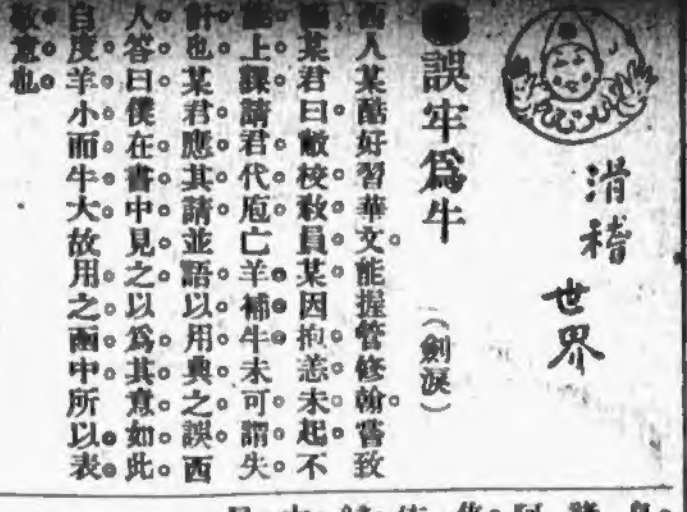 滑稽
世界
誤牢爲牛
(劍淚)
西人某酷好習華文能握管修翰嘗致
某君曰敝校敎員某因抱恙未起不
上課請君代庖亡羊補牛未可謂失
計也某君應其請並語以用典之誤西
人答曰僕在書中見之以爲其意如此
自度羊小而牛大故用之函中所以表
敬意也